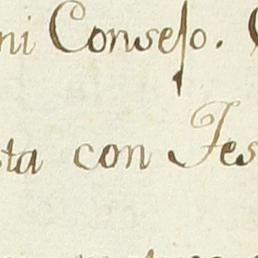 ni Consejo.
sta con Jes